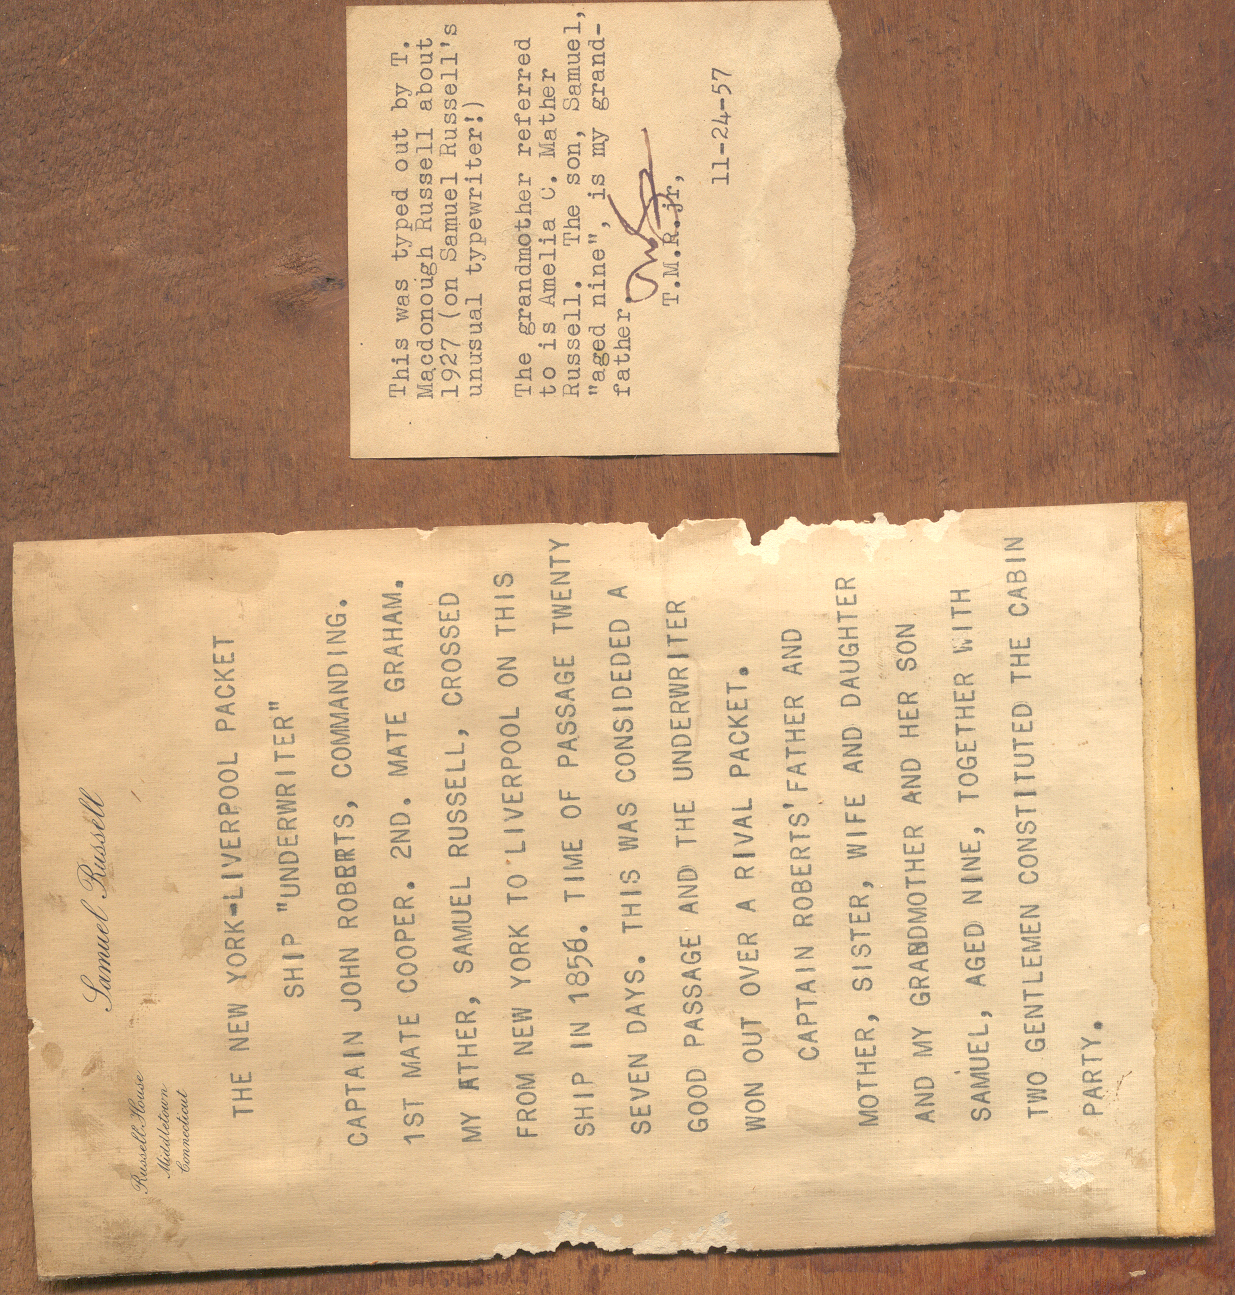 Samuel Russell
Russell House
Middletown
Connecticut
THE NEW YORK-LIVERPOOL PACKET
SHIP "UNDERWRITER"
CAPTAIN JOHN ROBERTS, COMMANDING.
1ST MATE COOPER. 2ND. MATE GRAHAM.
MY ATHER, SAMUEL RUSSELL, CROSSED
FROM NEW YORK TO LIVERPOOL ON THIS
SHIP IN 1856. TIME OF PASSAGE TWENTY
SEVEN DAYS. THIS WAS CONSIDEDED A
GOOD PASSAGE AND THE UNDERWRITER
WON OUT OVER A RIVAL PACKET.
CAPTAIN ROBERTS' FATHER AND
MOTHER, SISTER, WIFE AND DAUGHTER
AND MY GRANDMOTHER AND HER SON
SAMUEL, AGED NINE, TOGETHER WITH
TWO GENTLEMEN CONSTITUTED THE CABIN
PARTY.
This was typed out by T.
Macdonough Russell about
1927 (on Samuel Russell's
unusual typewriter!)
The grandmother referred
to is Amelia C. Mather
Russell. The son, Samuel,
"aged nine", is my grand-
father.
T.M.R. jr,
11-24-57